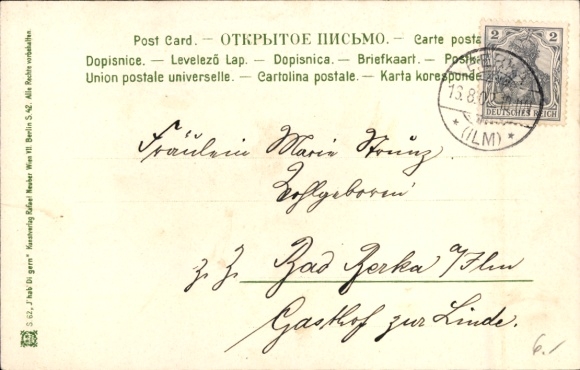 Post Card. — ОТКРЫТОЕ ПИСЬМО. — Carte posta
Dopisnice. — Levelező Lap. — Dopisnica. — Briefkaart. — Postka
Union postale universelle. — Cartolina postale. — Karta koresponde
2 2
DEUTSCHES REICH
16.8.0
* (ILM) *
Fräulein Marie Strunz
Wohlgeboren
z. Z. Bad Berka a/Ilm
Gasthof zur Linde.
6.
S. 62, „I hab' Di gern" Kunstverlag Rafael Neuber Wien VII Berlin S. 42. Alle Rechte vorbehalten